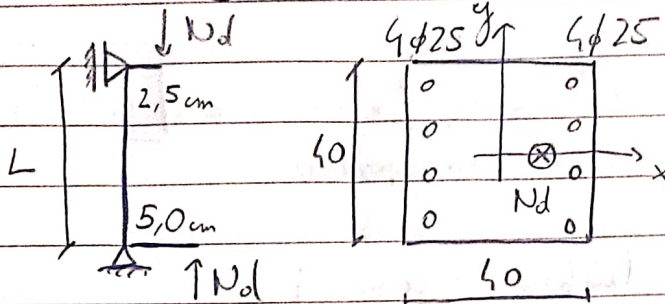 Nd
2,5cm
L
5,0cm
Nd
4φ25 y 4φ25
40
x
Nd
40